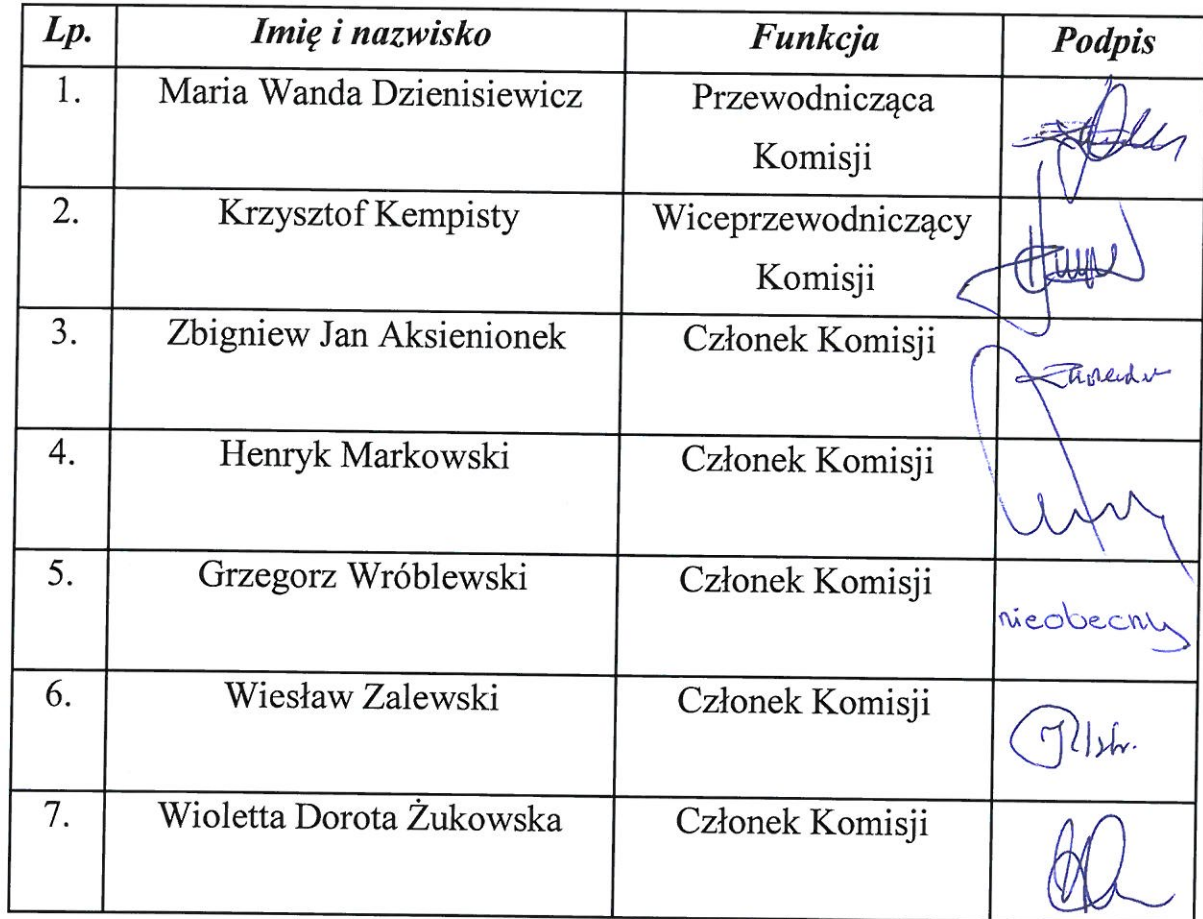 Lp. Imię i nazwisko Funkcja Podpis
1. Maria Wanda Dzienisiewicz Przewodnicząca
Komisji
2. Krzysztof Kempisty Wiceprzewodniczący
Komisji
3. Zbigniew Jan Aksienionek Członek Komisji
4. Henryk Markowski Członek Komisji
5. Grzegorz Wróblewski Członek Komisji
nieobecny
6. Wiesław Zalewski Członek Komisji
7. Wioletta Dorota Żukowska Członek Komisji